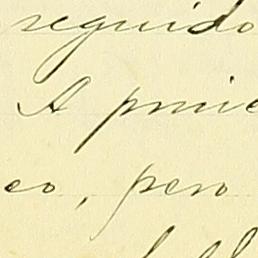 seguido
A princ
eo, pero